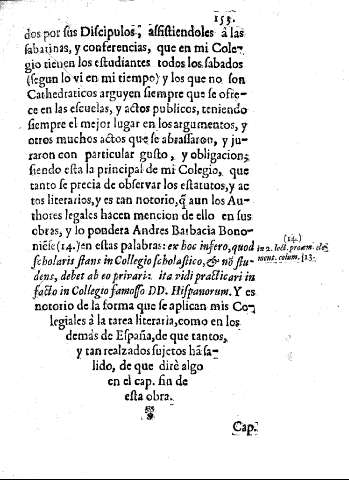 153.
dos por sus Discipulos, assistiendoles à las
sabatinas, y conferencias, que en mi Cole-
gio tienen los estudiantes todos los sabados
(segun lo vi en mi tiempo) y los que no son
Cathedraticos arguyen siempre que se ofre-
ce en las escuelas, y actos publicos, teniendo
siempre el mejor lugar en los argumentos, y
otros muchos actos que se abrassaron, y ju-
raron con particular gusto, y obligacion;
siendo esta la principal de mi Colegio, que
tanto se precia de observar los estatutos, y ac
tos literarios, y es tan notorio, q̃ aun los Au-
thores legales hacen mencion de ello en sus
obras, y lo pondera Andres Barbacia Bono-
niẽse (14.) en estas palabras: ex hoc infero, quod
scholaris stans in Collegio scholastico, & nõ stu-
dens, debet ab eo privari: ita vidi practicari in
facto in Collegio famosso DD. Hispanorum. Y es
notorio de la forma que se aplican mis Co-
legiales à la tarea literaria, como en los
demàs de España, de que tantos,
y tan realzados sujetos hã sa-
lido, de que dirè algo
en el cap. fin de
esta obra.
Cap.
(14.)
in 2. lect. proœm. cle
ment. colum. [13.